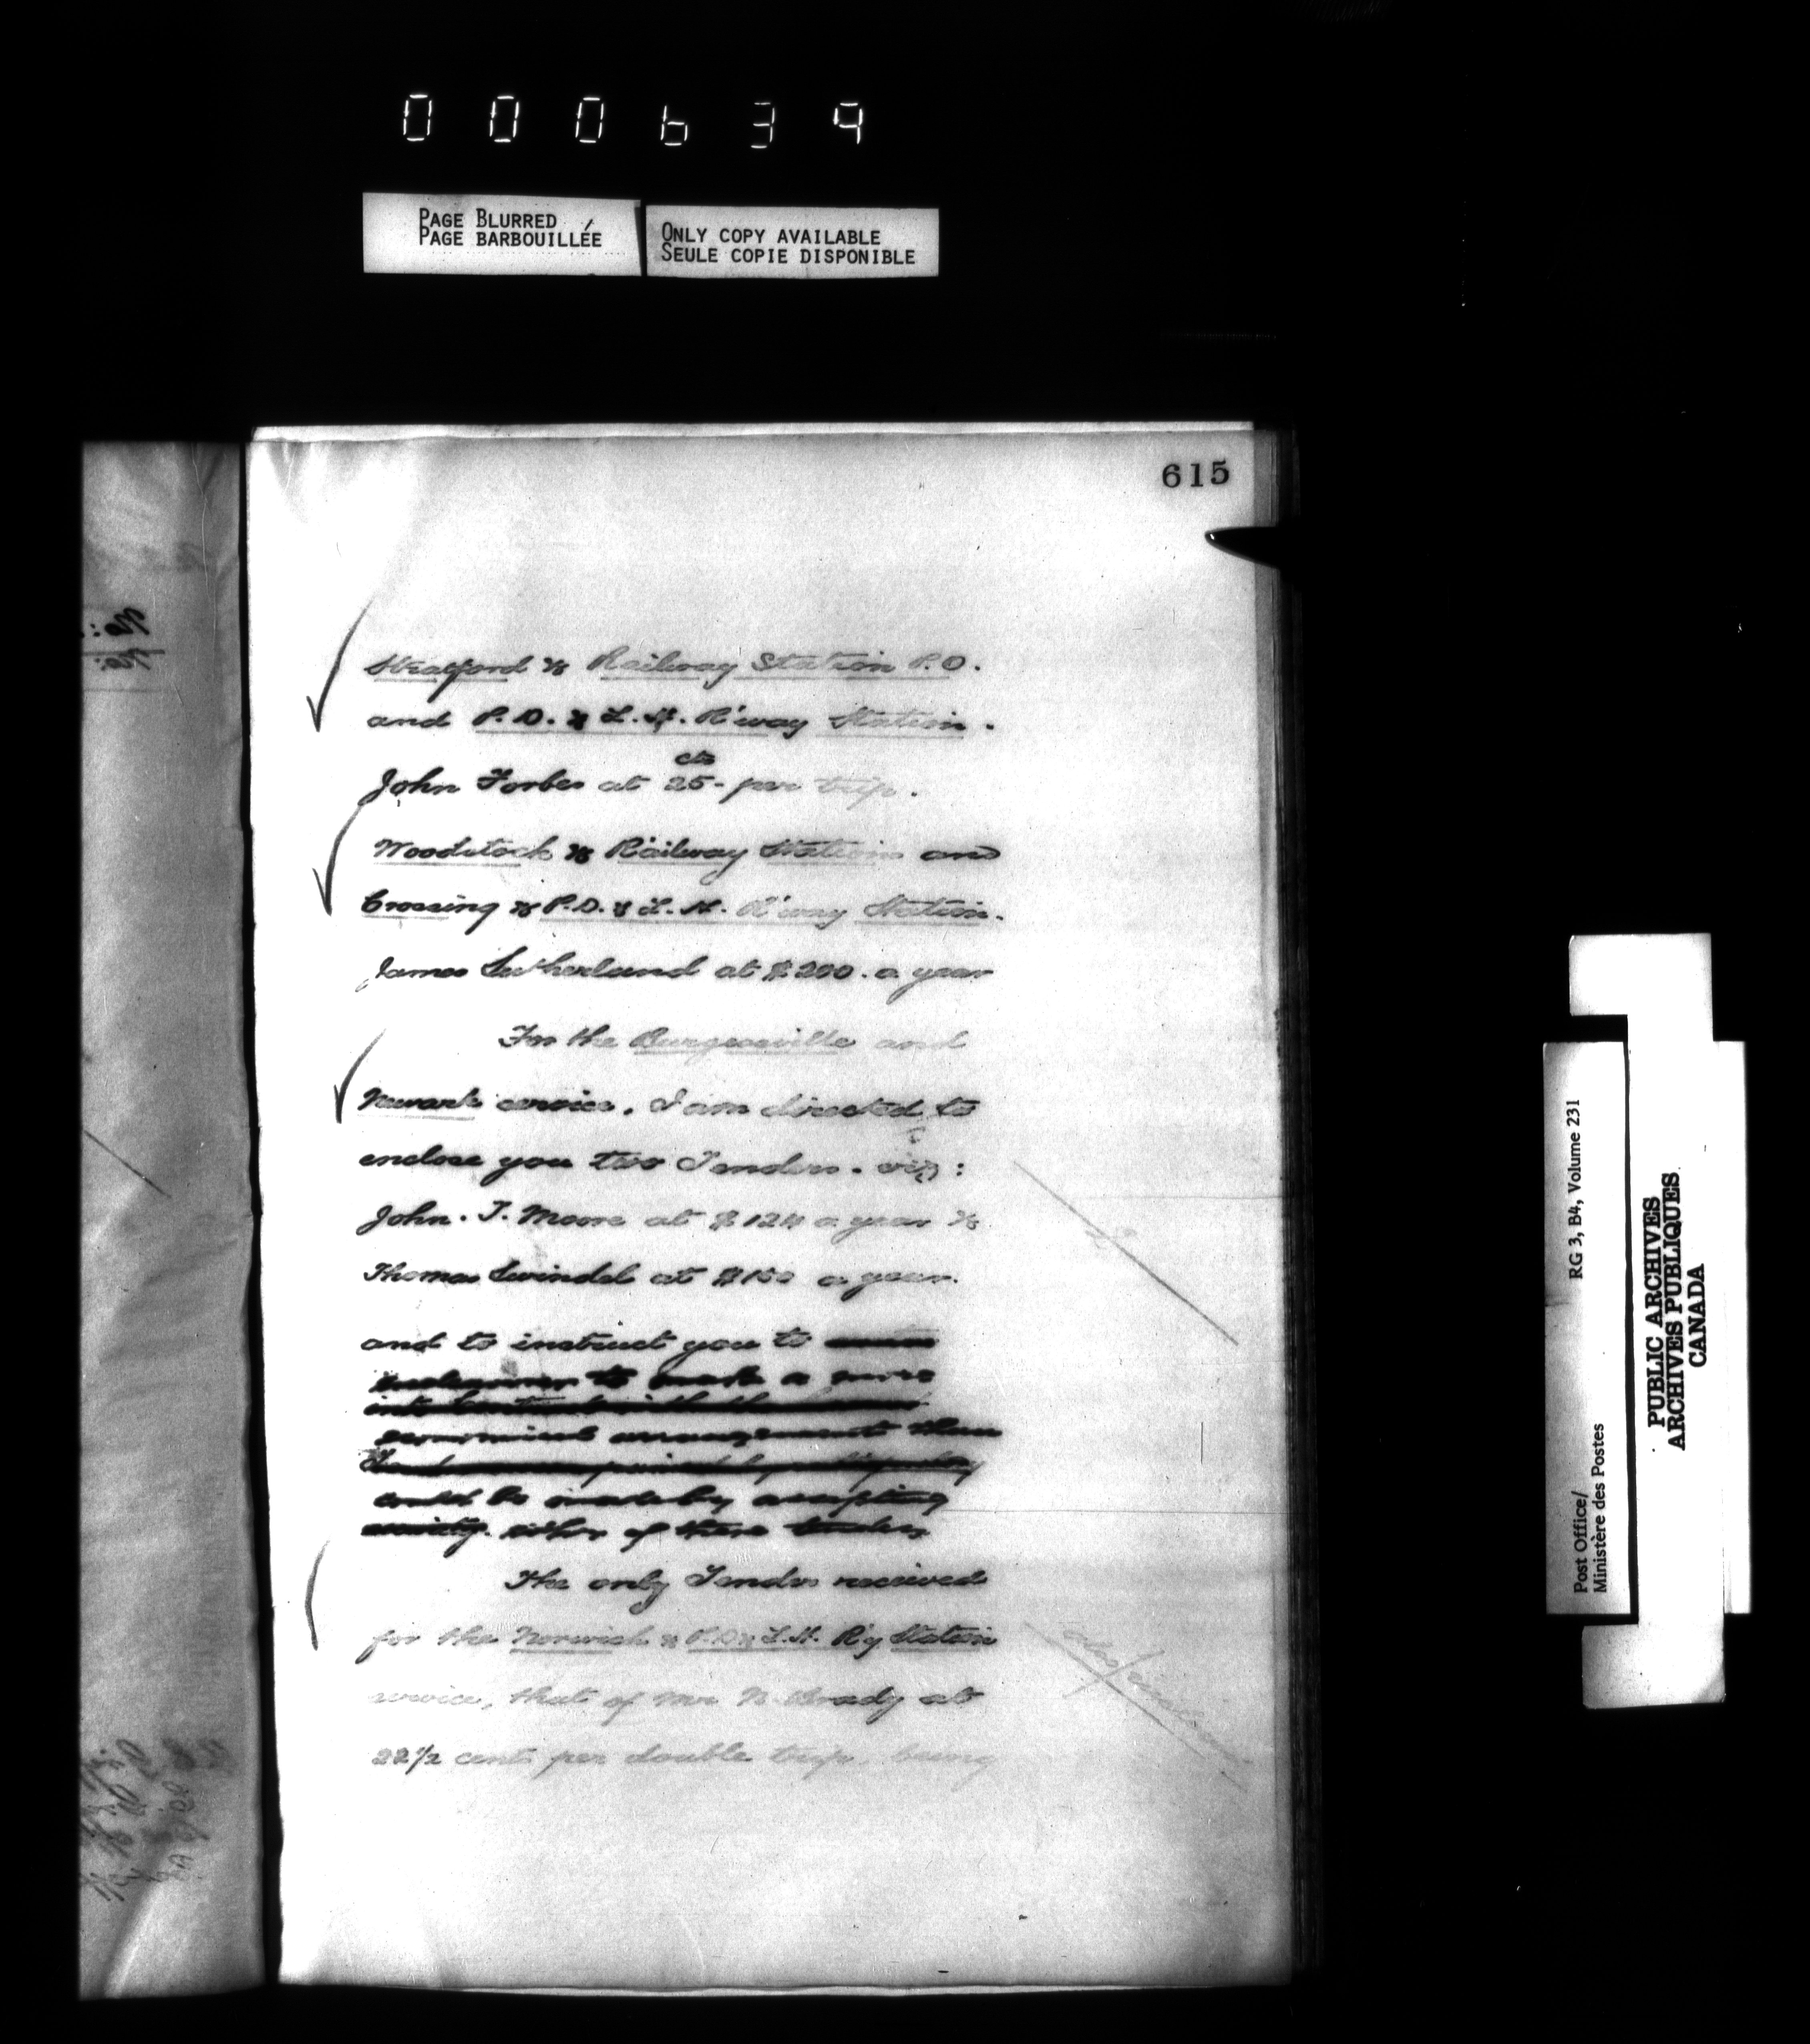 000639
PAGE BLURRED
PAGE BARBOUILLÉE
ONLY COPY AVAILABLE
SEULE COPIE DISPONIBLE
615
Stratford & Railway Station P.O.
and P. D. & L. H. R'way Station.
cts
John Forbes at 25- per trip.
Woodstock & Railway Station and
Crossing & P. D. & L. H. R'way Station.
James Sutherland at $200. a year
For the Burgessville and
Newark service, I am directed to
enclose you two Tenders. viz:
John. T. Moore at $124 a year &
Thomas Swindel at $150 a year.
and to instruct you to
to make a more
into Contract with the
economical arrangement than
could be made by accepting
either of these tenders
The only Tender received
for the Norwich & P. D. & L. H. R'y Station
service, that of Mr N. Brady at
22½ cents per double trip, being
Post Office/
Ministère des Postes
RG 3, B4, Volume 231
PUBLIC ARCHIVES
ARCHIVES PUBLIQUES
CANADA